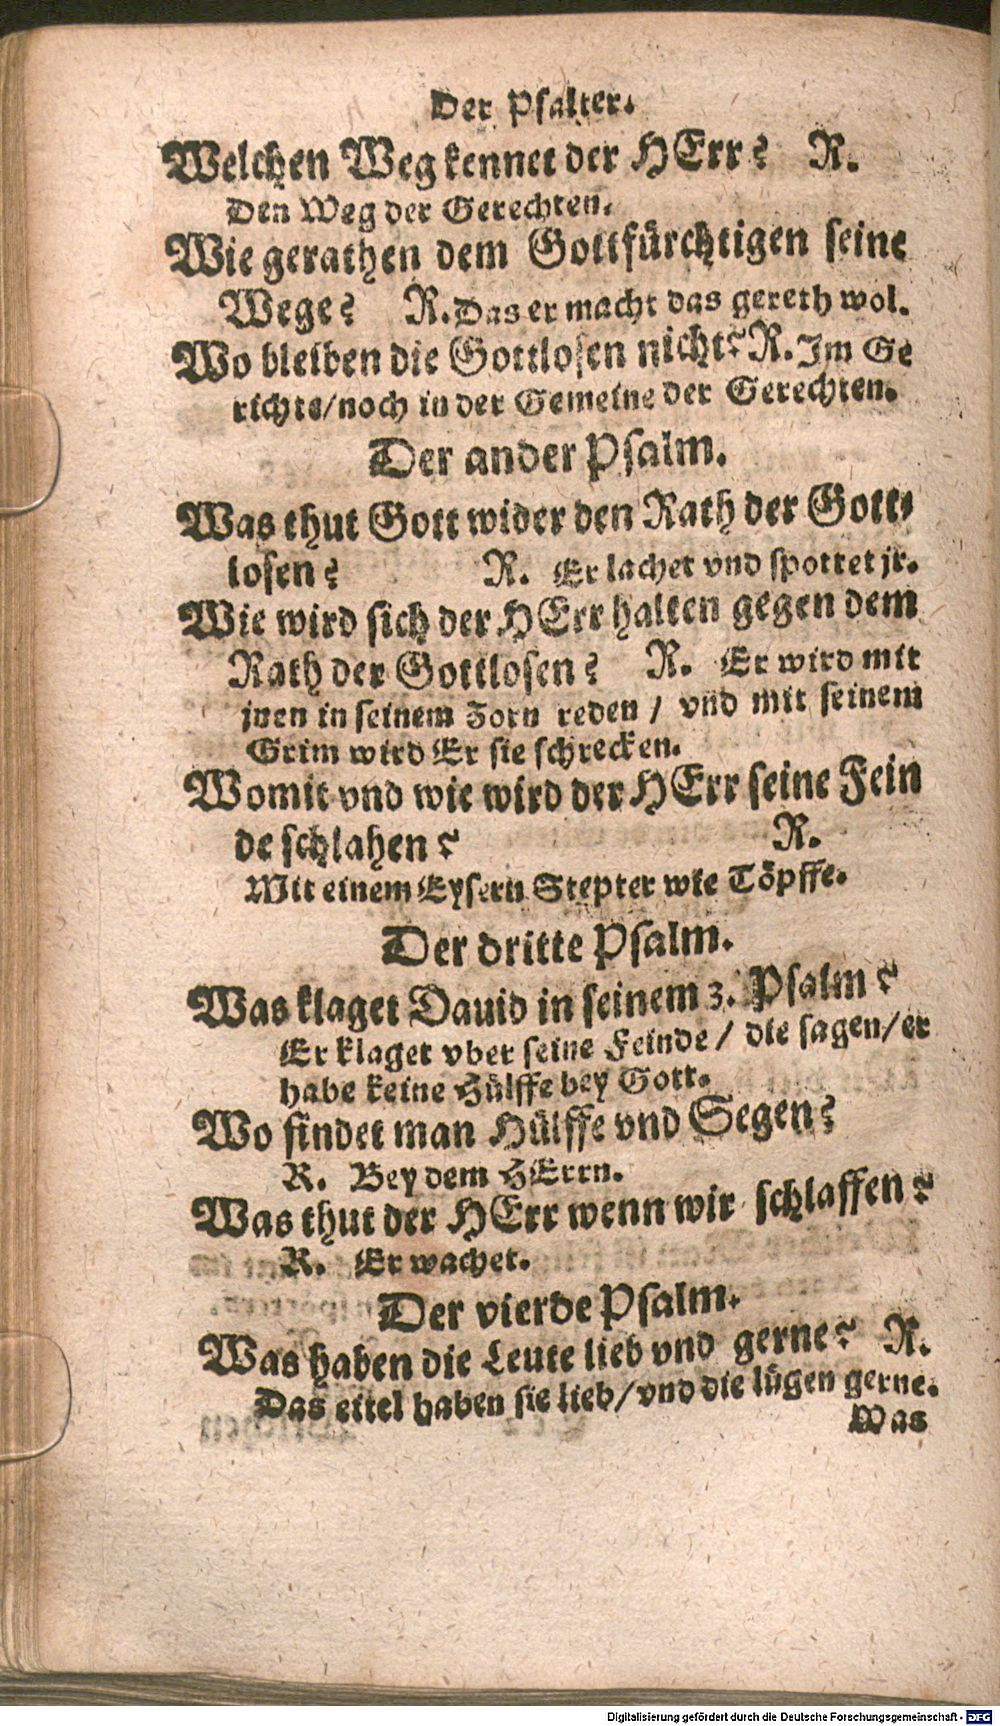 Der Psalter.
Welchen Weg kennet der HErr? R.
Den Weg der Gerechten.
Wie gerathen dem Gottfürchtigen seine
Wege? R. Das er macht das gereth wol.
Wo bleiben die Gottlosen nicht? R. Im Ge
richte/noch in der Gemeine der Gerechten.
Der ander Psalm.
Was thut Gott wider den Rath der Gott-
losen? R. Er lachet vnd spottet jr.
Wie wird sich der HErr halten gegen dem
Rath der Gottlosen? R. Er wird mit
jnen in seinem Zorn reden / vnd mit seinem
Grim wird Er sie schrecken.
Womit vnd wie wird der HErr seine Fein
de schlahen? R.
Mit einem Eysern Stepter wie Töpffe.
Der dritte Psalm.
Was klaget Dauid in seinem 3. Psalm?
Er klaget vber seine Feinde / die sagen/er
habe keine Hülffe bey Gott.
Wo findet man Hülffe vnd Segen?
R. Bey dem HErrn.
Was thut der HErr wenn wir schlaffen?
R. Er wachet.
Der vierde Psalm.
Was haben die Leute lieb vnd gerne? R.
Das eitel haben sie lieb/vnd die lügen gerne.
Was
Digitalisierung gefördert durch die Deutsche Forschungsgemeinschaft - DFG